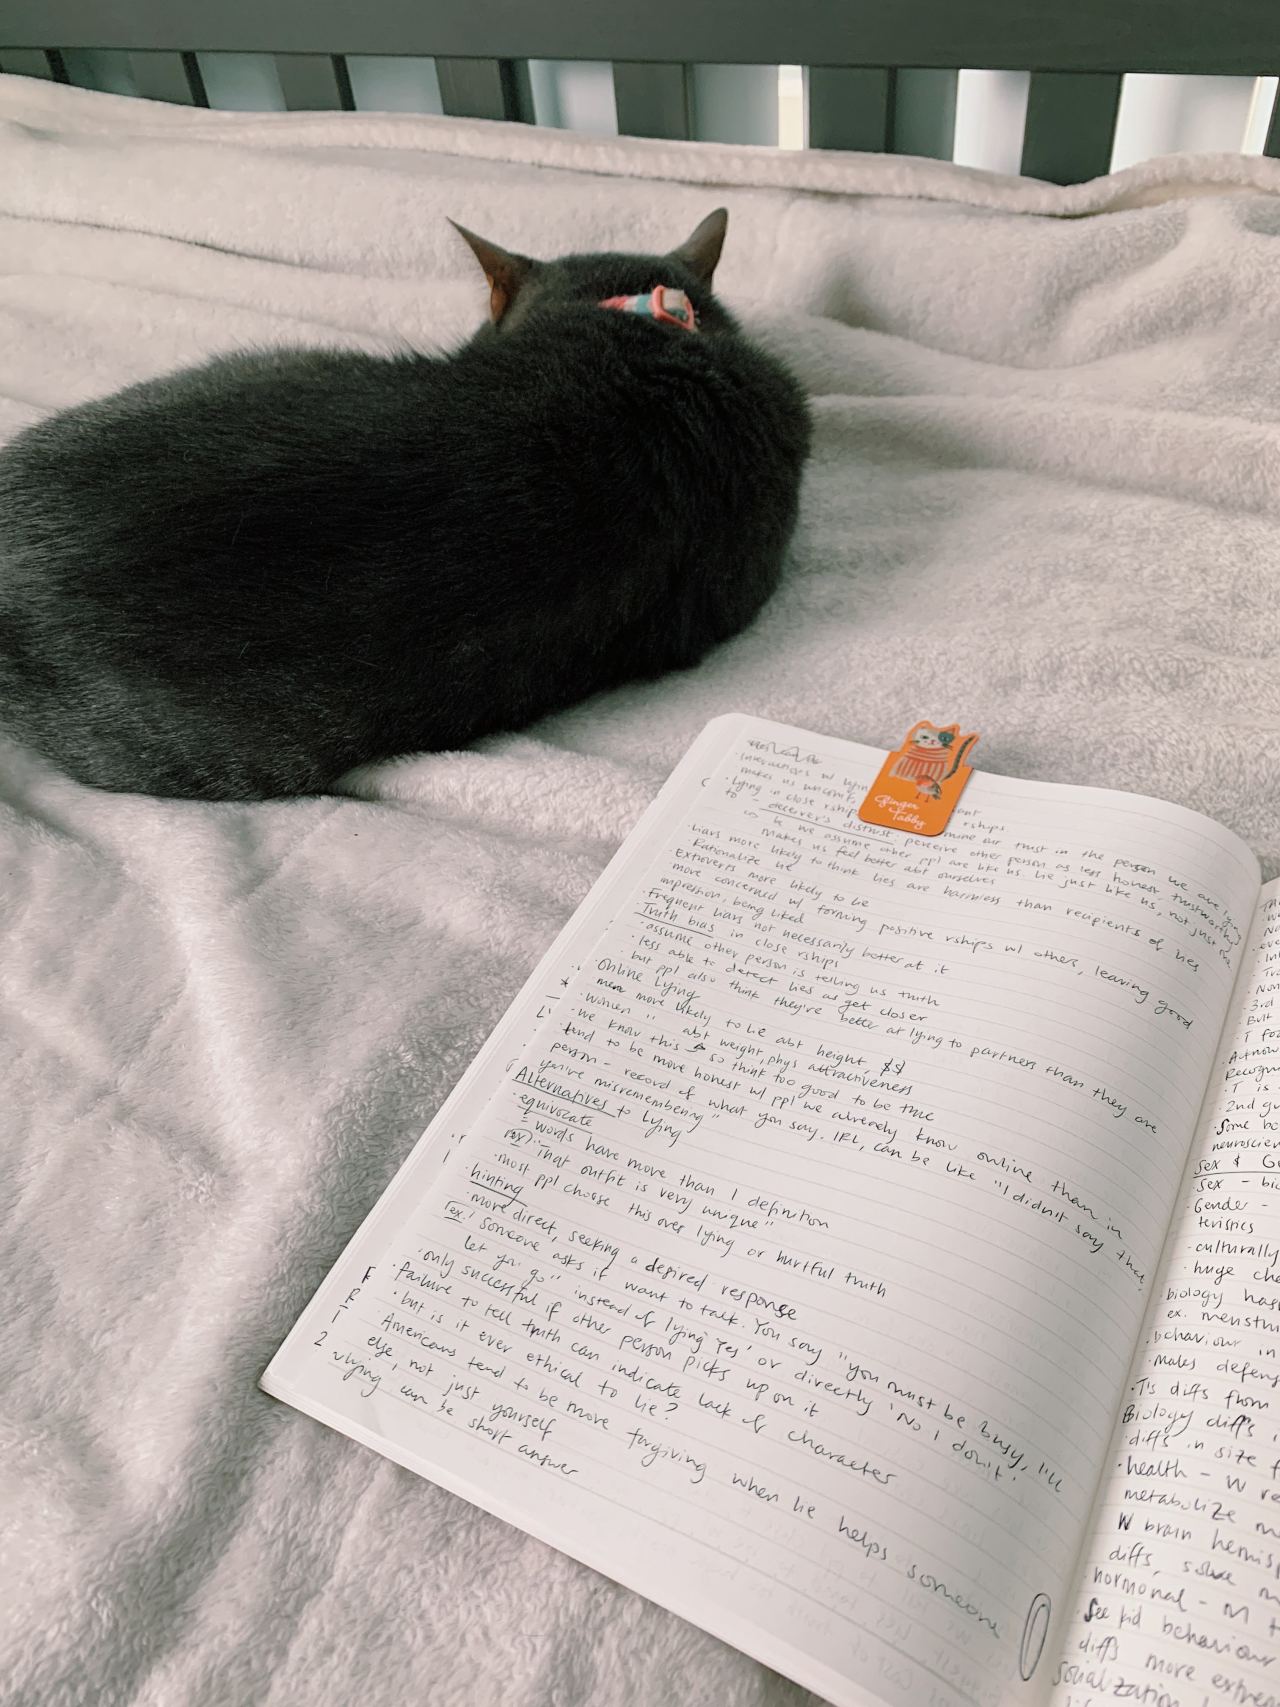 interactions w/ lying
makes us uncomf,
lying in close rships
to - deceiver's distrust: perceive other person as less honest trustworthy
mine our trust in the person we are lying
rships
bc we assume other ppl are like us. lie just like us, not just
makes us feel better abt ourselves
· liars more likely to think lies are harmless than recipients of lies
Rationalize lie
· Extroverts more likely to lie
more concerned w/ forming positive rships w/ others, leaving good
impression, being liked
· Frequent liars not necessarily better at it
· Truth bias in close rships
· assume other person is telling us truth
· less able to detect lies as get closer
but ppl also think they're better at lying to partners than they are
· online lying
men more likely to lie abt height, $$
· women " abt weight, phys attractiveness
· we know this → so think too good to be true
· tend to be more honest w/ ppl we already know online than in
person - record of what you say. IRL, can be like "I didn't say that,
you're misremembering"
Alternatives to lying
· equivocate
= words have more than 1 definition
ex): "That outfit is very unique"
· most ppl choose this over lying or hurtful truth
· hinting
· more direct, seeking a desired response
ex! Someone asks if want to talk. You say "you must be busy, I'll
let you go" instead of lying 'Yes' or directly 'No I don't'.
· only successful if other person picks up on it
· failure to tell truth can indicate lack of character
· but is it ever ethical to lie?
Americans tend to be more forgiving when lie helps someone
else, not just yourself
lying, can be short answer
Ginger
Tabby
3rd
Recogn
· 2nd
· Some
neuroscien
Sex &
Sex - bio
· Gender -
teristics
· culturally
· huge
biology has
ex. menstru
· behaviour in
· males
· T's diffs from
Biology diffs
· diffs in size
· health - W
metabolize
W brain hemis
diffs,
· hormonal - M
· See kid behaviour
diffs more
socialization